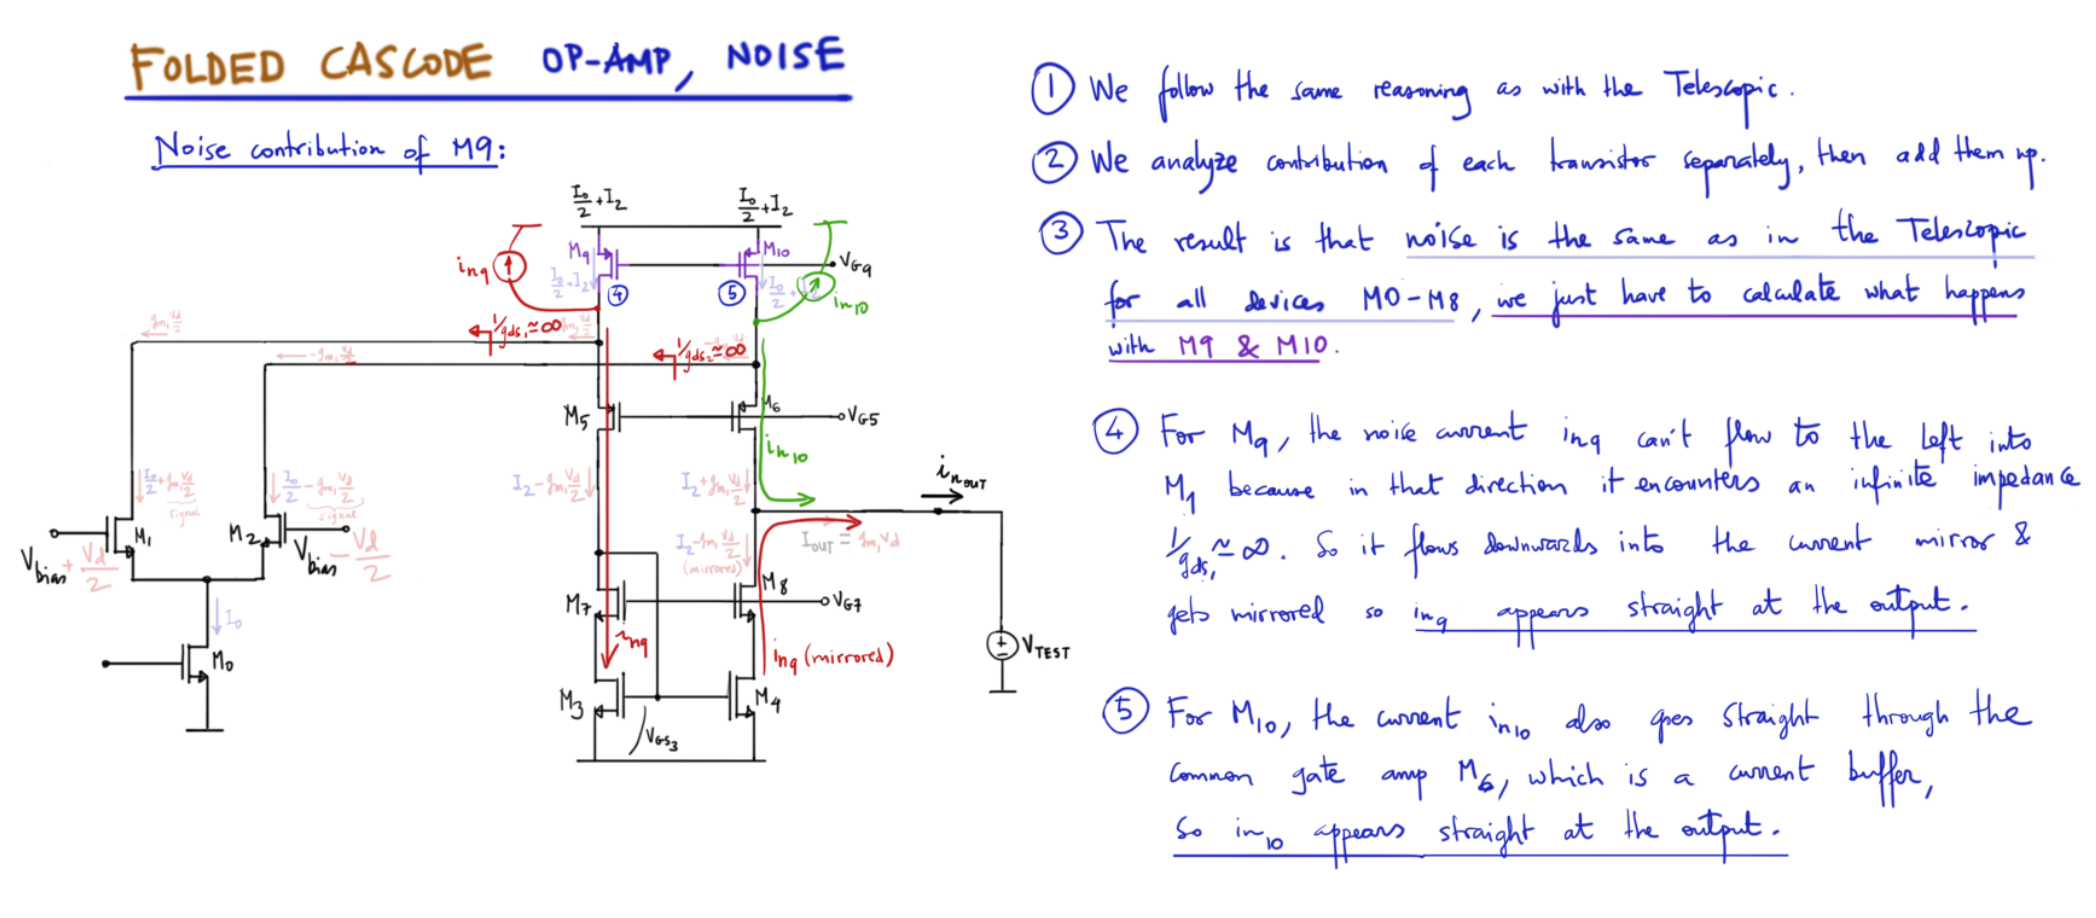 FOLDED CASCODE OP-AMP, NOISE
Noise contribution of M9:
I₀/2 + I₂
I₀/2 + I₂
M9
M10
VG9
in9
I₀/2 + I₂
④
⑤
I₀/2 + I₂
in10
gm₁ Vd/2
1/gds₁ ≃ ∞
-gm₁ Vd/2
1/gds₂ ≃ ∞
M5
M6
VG5
in10
I₀/2 + gm₁ Vd/2
signal
I₀/2 - gm₁ Vd/2
signal
I₂ - gm₁ Vd/2
I₂ + gm₁ Vd/2
inout
M1
M2
Vbias + Vd/2
Vbias - Vd/2
I₂ - gm₁ Vd/2
(mirrored)
Iout = gm₁Vd
M7
M8
VG7
I₀
M0
in9
in9 (mirrored)
VTEST
M3
M4
VGS3
① We follow the same reasoning as with the Telescopic.
② We analyze contribution of each transistor separately, then add them up.
③ The result is that noise is the same as in the Telescopic
for all devices M0-M8, we just have to calculate what happens
with M9 & M10.
④ For M9, the noise current in9 can't flow to the left into
M1 because in that direction it encounters an infinite impedance
1/gds₁ ≃ ∞. So it flows downwards into the current mirror &
gets mirrored so in9 appears straight at the output.
⑤ For M10, the current in10 also goes straight through the
common gate amp M6, which is a current buffer,
so in10 appears straight at the output.